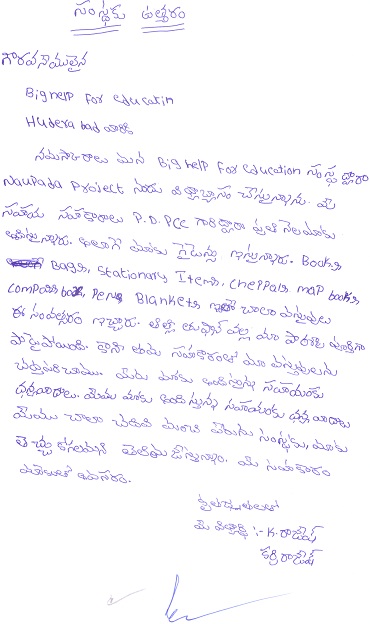 సంస్థకు ఉత్తరం
గౌరవనీయులైన
Bighelp For education
Hudera bad వారికి
నమస్కారాలు మన Bighelp For education సంస్థ ద్వారా
Naupada Project నందు విద్యాభ్యాసం చేస్తున్నాను. మీ
సహాయ సహకారాలు P.D.PCC గారిద్వారా ప్రతి నెల మాకు
అందిస్తున్నారు. అలాగే మాకు గైడెన్సు ఇస్తున్నారు. Books
Bags, Stationary Items, cheppals map books,
compass box, Pens Blankets చాలా వస్తువులు
ఈ సంవత్సరం ఇచ్చారు. తిత్లీ తుఫాన్ వల్ల మా పాఠశాల పూర్తిగా
పాడైపోయింది. కాని తమ సహకారంతో మా వస్తువులను
మీరు మాకు అందిస్తున్న సహాయంకు
ధన్యవాదాలు. మీరు మాకు అందిస్తున్న సహాయంకు ధన్యవాదాలు
మేము చాలా చదివి మంచి పేరును సంస్థకు, మాకు
తెచ్చు కోగలమని తెలియ జేస్తున్నాం. మీ సహకారం
మాకు ఎంతో అవసరం.
కృతజ్ఞతలతో
మీ విద్యార్థి :- K. రాజేష్
కర్రి రాజేష్